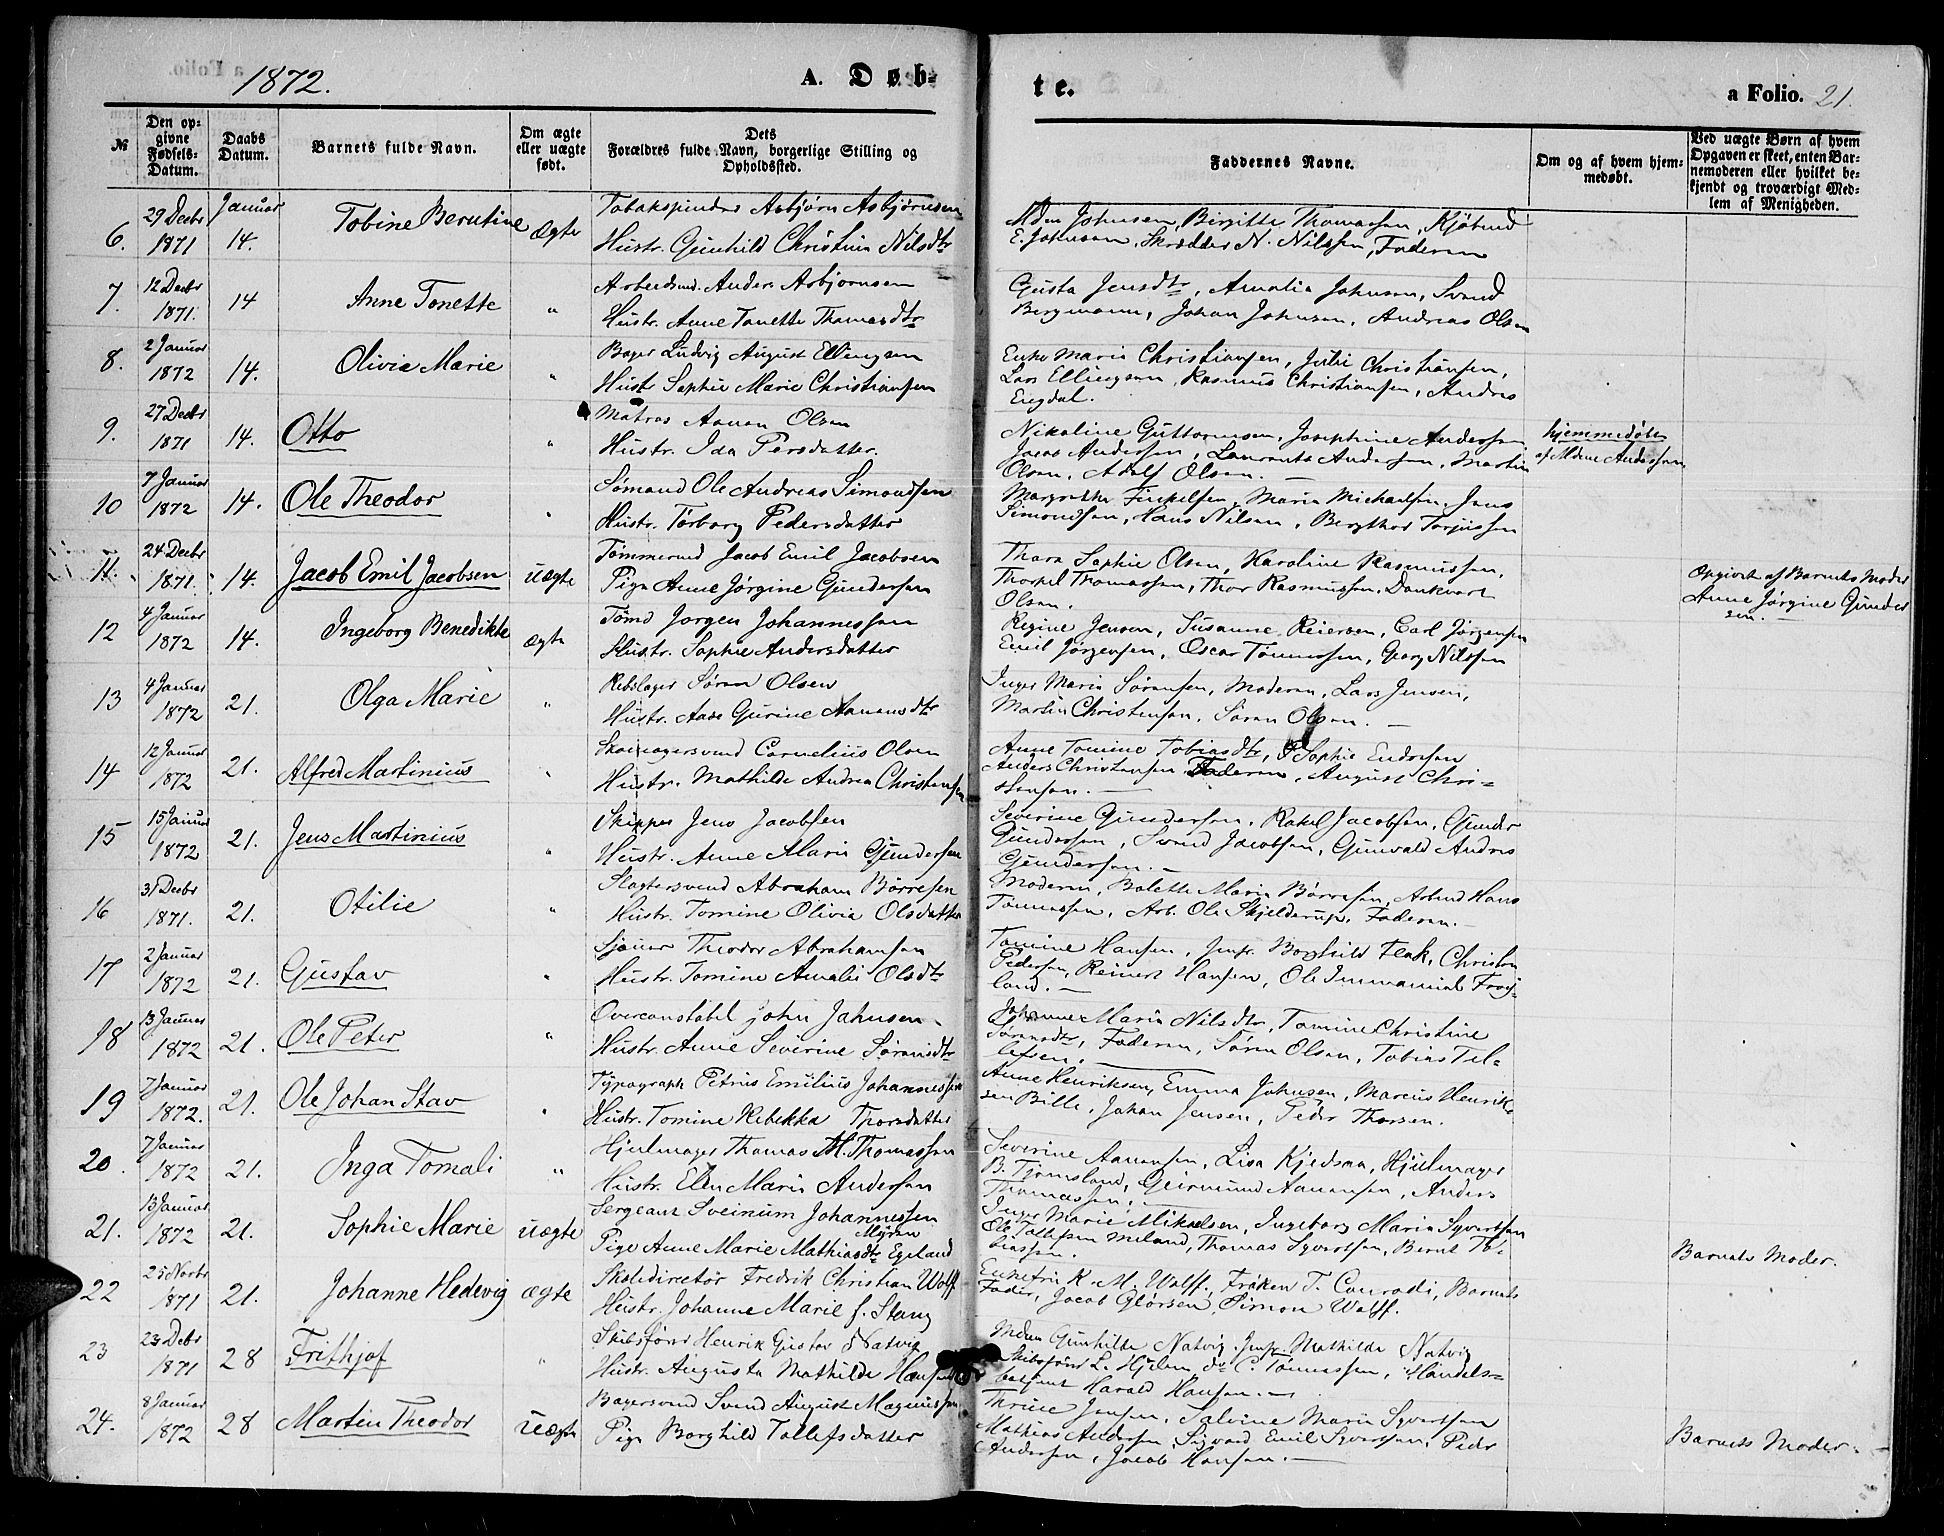 1872.
A. Døb-
te.
a Folio. 21.
№
Den op-
givne
Fødsels-
Datum.
Daabs
Datum.
Barnets fulde Navn.
Om ægte
eller uægte
født.
Dets
Forældres fulde Navn, borgerlige Stilling og
Opholdssted.
Faddernes Navne.
Om og af hvem hjem-
medøbt.
Ved uægte Børn af hvem
Opgaven er skeet, enten Bar-
nemoderen eller hvilket be-
kjendt og troværdigt Med-
lem af Menigheden.
6. 29 Decbr 1871 Januar 14. Tobine Berntine ægte
Tobakspinder Asbjørn Asbjørnsen
Hustr. Gunhild Christine Nilsdtr
Johnsen, Birgitte Thomassen, Kjøbmd
E. Johnsen, Skrædder N. Nilssen, Faderen
7. 12 Decbr 1871. 14 Anne Tonette "
Arbeidsmd. Anders Asbjørnsen
Hustr. Anne Tonette Thomasdtr
Gusta Jensdtr, Amalia Johnsen, Svend
Bergmann, Johan Johnsen, Andreas Olsen
8. 2 Januar 1872 14. Olivia Marie "
Bager Ludvig August Ellingsen
Hustr Sophie Marie Christiansen
Enke Maria Christiansen, Julie Christiansen,
Lars Ellingsen, Rasmus Christiansen, Andreas
Engdal.
9. 27 Decbr 1871 14. Otto "
Matros Aanon Olsen
Hustr. Ida Persdatter.
Nikoline Guttormsen, Josephine Andersen
Jacob Andersen, Laurents Andersen, Martin
Olsen, Adolf Olsen.
hjemmedøbt
af Mdme Andersen
10 7 Januar 1872 14. Ole Theodor "
Sømand Ole Andreas Simonsen
Hustr. Torborg Pedersdatter
Margrethe Finkelsen, Maria Michaelsen, Jens
Simondsen, Hans Nilsen, Bergthor Torjussen
11. 24 Decbr 1871. 14. Jacob Emil Jacobsen uægte
Tømmermd Jacob Emil Jacobsen
Pige Anne Jørgine Gundersen
Thara Sophie Olsen, Karoline Rasmussen,
Thorpel Thomassen, Thor Rasmussen, Dankvart
Olsen.
Opgivet af Barnets Moder
Anne Jørgine Gunder
sen.
12 4 Januar 1872 14. Ingeborg Benedikte ægte
Tømd Jørgen Johannessen
Hustr. Sophie Andersdatter
Regine Jensen, Susanne Reiersen, Carl Jørgensen
Emil Jørgensen, Oscar Tønnessen, Georg Nilsson
13 4 Januar 1872 21. Olga Marie "
Rebslager Søren Olsen
Hustr. Aase Gurine Aanensdtr
Inger Maria Sørensen, Moderen, Lars Jensen,
Martin Christensen, Søren Olsen.
14 12 Januar 1872 21. Alfred Martinius "
Skomagersvend Cornelius Olsen
Hustr. Mathilde Andrea Christensen
Anne Tomine Tobiasdtr, Sophie Endresen
Anders Christensen, Faderen, August Chri-
stensen.
15 15 Januar 1872 21. Jens Martinius "
Skipper Jens Jacobsen
Hustr. Anne Maria Gundersen
Severine Gundersen, Rakel Jacobsen, Gunder
Gundersen, Svend Jacobsen, Gunvald Andreas
Gundersen.
16 31 Decbr 1871. 21. Otilie "
Slagtersvend Abraham Børresen
Hustr. Tomine Olivia Olsdatter
Moderen, Bolette Maria Børresen, Arbmd Hans
Tønnessen, Arb. Ole Skjelderup, Faderen.
17 2 Januar 1872 21. Gustav "
Sjouer Theodor Abrahamsen
Hustr. Tomine Amalie Olsdtr
Tomine Hansen, Jmfr. Borghild Flak, Christen
Pedersen, Reinert Hansen, Ole Immanuel Frøy-
land.
18 13 Januar 1872 21. Ole Peter "
Overconstabel John Johnsen
Hustr. Anne Severine Sørensdtr
Johanne Maria Nilsdtr, Tomine Christine
Sørensdtr, Faderen, Søren Olsen, Tobias Tel-
lefsen.
19 7 Januar 1872. 21. Ole Johan Stav "
Typograph Petrus Emilius Johannessen
Hustr. Tomine Rebekka Thorsdatter
Anne Henriksen, Emma Johnsen, Marcus Henrik-
sen Bille, Johan Jensen, Peder Thorsen.
20. 7 Januar 1872 21. Inga Tomali "
Hjulmager Thomas M. Thomassen
Hustr. Elen Maria Andersen
Severine Aanensen, Lisa Kjedsen, Hjulmager
B. Tjomsland, Geirmund Aanensen, Anders
Thomassen.
21. 13 Januar 1872 21. Sophie Marie uægte
Sergeant Sveinum Johannessen
Myren
Pige Anne Marie Mathiasdtr Egeland
Inger Marie Mikaelsen, Ingeborg Maria Syvertsen
Ole Tellefsen Meland, Thomas Syvertsen, Bernt To-
biassen.
Barnets Moder.
22 25 Novbr 1871 21. Johanne Hedevig ægte
Skoledirectør Fredrik Christian Wolff
Hustr. Johanne Marie f. Stang
Enkefru K. M. Wolff, Frøken T. Conradi, Barnets
Fader, Jacob Glørsen, Simon Wolff.
23 23 Decbr 1871 28 Frithjof "
Skibsfører Henrik Gustav Natvig
Hustr. Augusta Mathilde Hansen
Mdm Gunhilde Natvig, Jmfr. Mathilde Natvig
Skibsfører L. Hjelm, do C. Tønnessen, Handels-
betjent Harald Hansen.
24. 8 Januar 1872 28 Martin Theodor uægte
Bagersvend Svend August Magnussen
Pige Borghild Tollefsdatter
Thrine Jensen, Talvine Maria Syvertsen
Mathias Andersen, Sigvard Emil Syvertsen, Peder
Andersen, Jacob Hansen.
Barnets Moder.